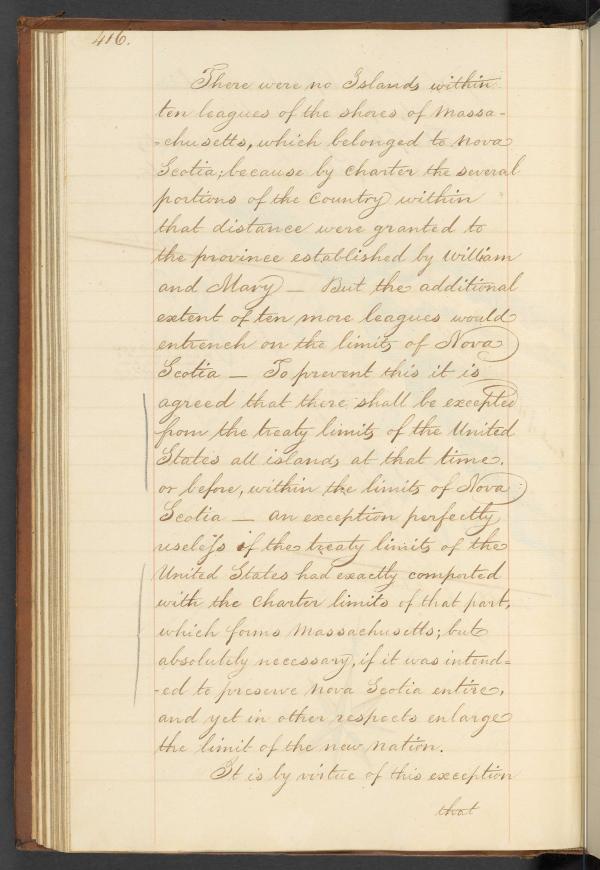 416.
There were no Islands within
ten leagues of the shores of Massa-
-chusetts, which belonged to Nova
Scotia; because by Charter the several
portions of the Country within
that distance were granted to
the province established by William
and Mary — But the additional
extent of ten more leagues would
entrench on the limits of Nova
Scotia — To prevent this it is
agreed that there shall be excepted
from the treaty limits of the United
States all islands at that time,
or before, within the limits of Nova
Scotia — an exception perfectly
useless if the treaty limits of the
United States had exactly comported
with the Charter limits of that part,
which forms Massachusetts; but
absolutely necessary, if it was intend=
-ed to preserve Nova Scotia entire,
and yet in other respects enlarge
the limit of the new nation.
It is by virtue of this exception
that